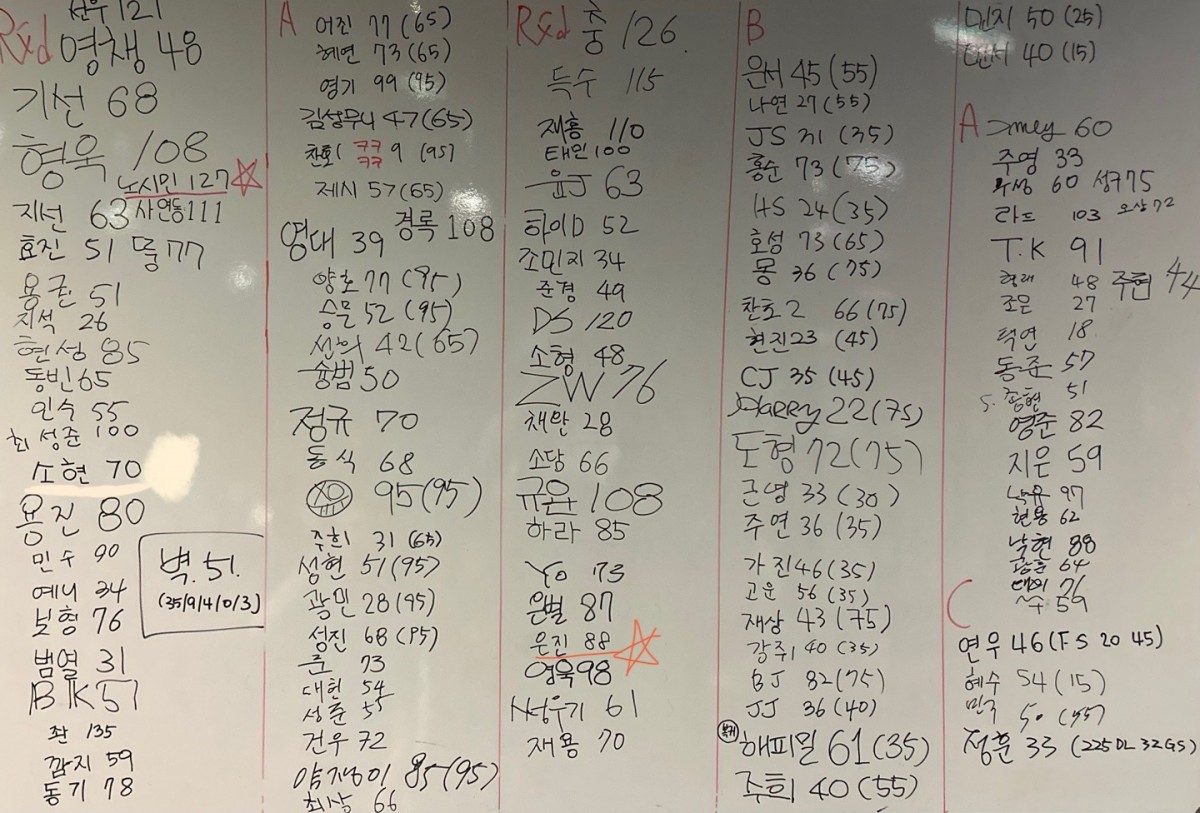 선우 121
Rxd 영챙 48
기선 68
형욱 108
노시민 127
지선 63 사연동 111
효진 51 뚤 77
용균 51
지석 26
현성 85
동빈 65
인수 55
최성준 100
소현 70
용진 80
민수 90
벽. 51.
(35/9/4/0/3)
예니 34
보형 76
범열 31
BIK 51
좐 135
깜지 59
동기 78
A 어진 77 (65)
혜연 73 (65)
영기 99 (95)
김성무니 47 (65)
찬호1 ㅋㅋ ㅋㅋ 9 (95)
제시 57 (65)
경록 108
영대 39
양호 77 (95)
승문 52 (95)
선의 42 (65)
슝범 50
정규 70
동식 68
95 (95)
주희 31 (65)
성현 51 (95)
광민 28 (95)
성진 68 (95)
준 73
대헌 54
성준 55
건우 72
얌쟁이 85 (95)
최상 66
Rxd 충 126.
득수 115
재홍 110
태인 100
윤J 63
하이D 52
조민지 34
준경 49
DS 120
소형 48
ZW 76
채만 28
소담 66
규윤 108
하라 85
YO 73
은별 87
은진 88
영욱 98
성우기 61
재용 70
B
윤서 45 (55)
나연 27 (55)
JS 31 (35)
홍순 73 (75)
HS 24 (35)
호성 73 (65)
몽 36 (75)
찬호2 66 (75)
현진 23 (45)
CJ 35 (45)
Harry 22 (75)
도형 72 (75)
근영 33 (30)
주연 36 (35)
가진 46 (35)
고운 56 (35)
재상 43 (75)
강주1 40 (35)
BJ 82 (75)
JJ 36 (40)
해피밀 61 (35)
주희 40 (55)
민지 50 (25)
민서 40 (15)
A 60
주영 33
60 성구 75
라프 103 오상 72
T.K 91
형래 48 주현 44
조은 27
덕연 18
동준 57
S. 종현 51
영준 82
지은 59
97
현용 62
낙현 88
광훈 64
76
59
C
연우 46 (FS 20 45)
혜수 54 (15)
민국 50 (55)
정훈 33 (225DL 32GS)